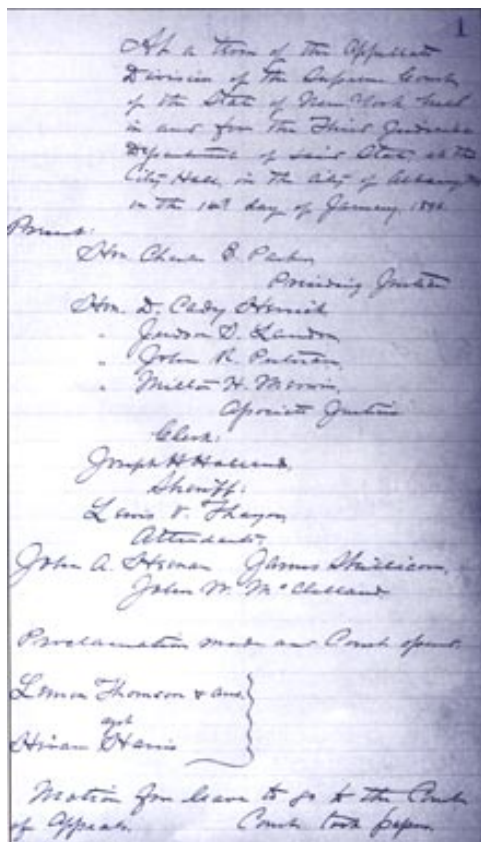 1
At a term of the Appellate
Division of the Supreme Court
of the State of New York held
in and for the Third Judicial
Department of said State, at the
City Hall, in the city of Albany
on the day of January, 1896
Present:
Hon. Charles E. Parker
Presiding Justice
Hon. D. Cady Herrick
" Judson S. Landon
" John R. Putnam,
" Milton H. Merwin,
Associate Justices
Clerk:
Joseph H.
Sheriff:
Lewis V. Thayer,
Attendants,
John A. James
John W. McClelland.
Proclamation made and Court opened.
Lemon Thomson & ano.
agst
Hiram Harris
Motion for leave to go to the Court
of Appeals. Court took papers.